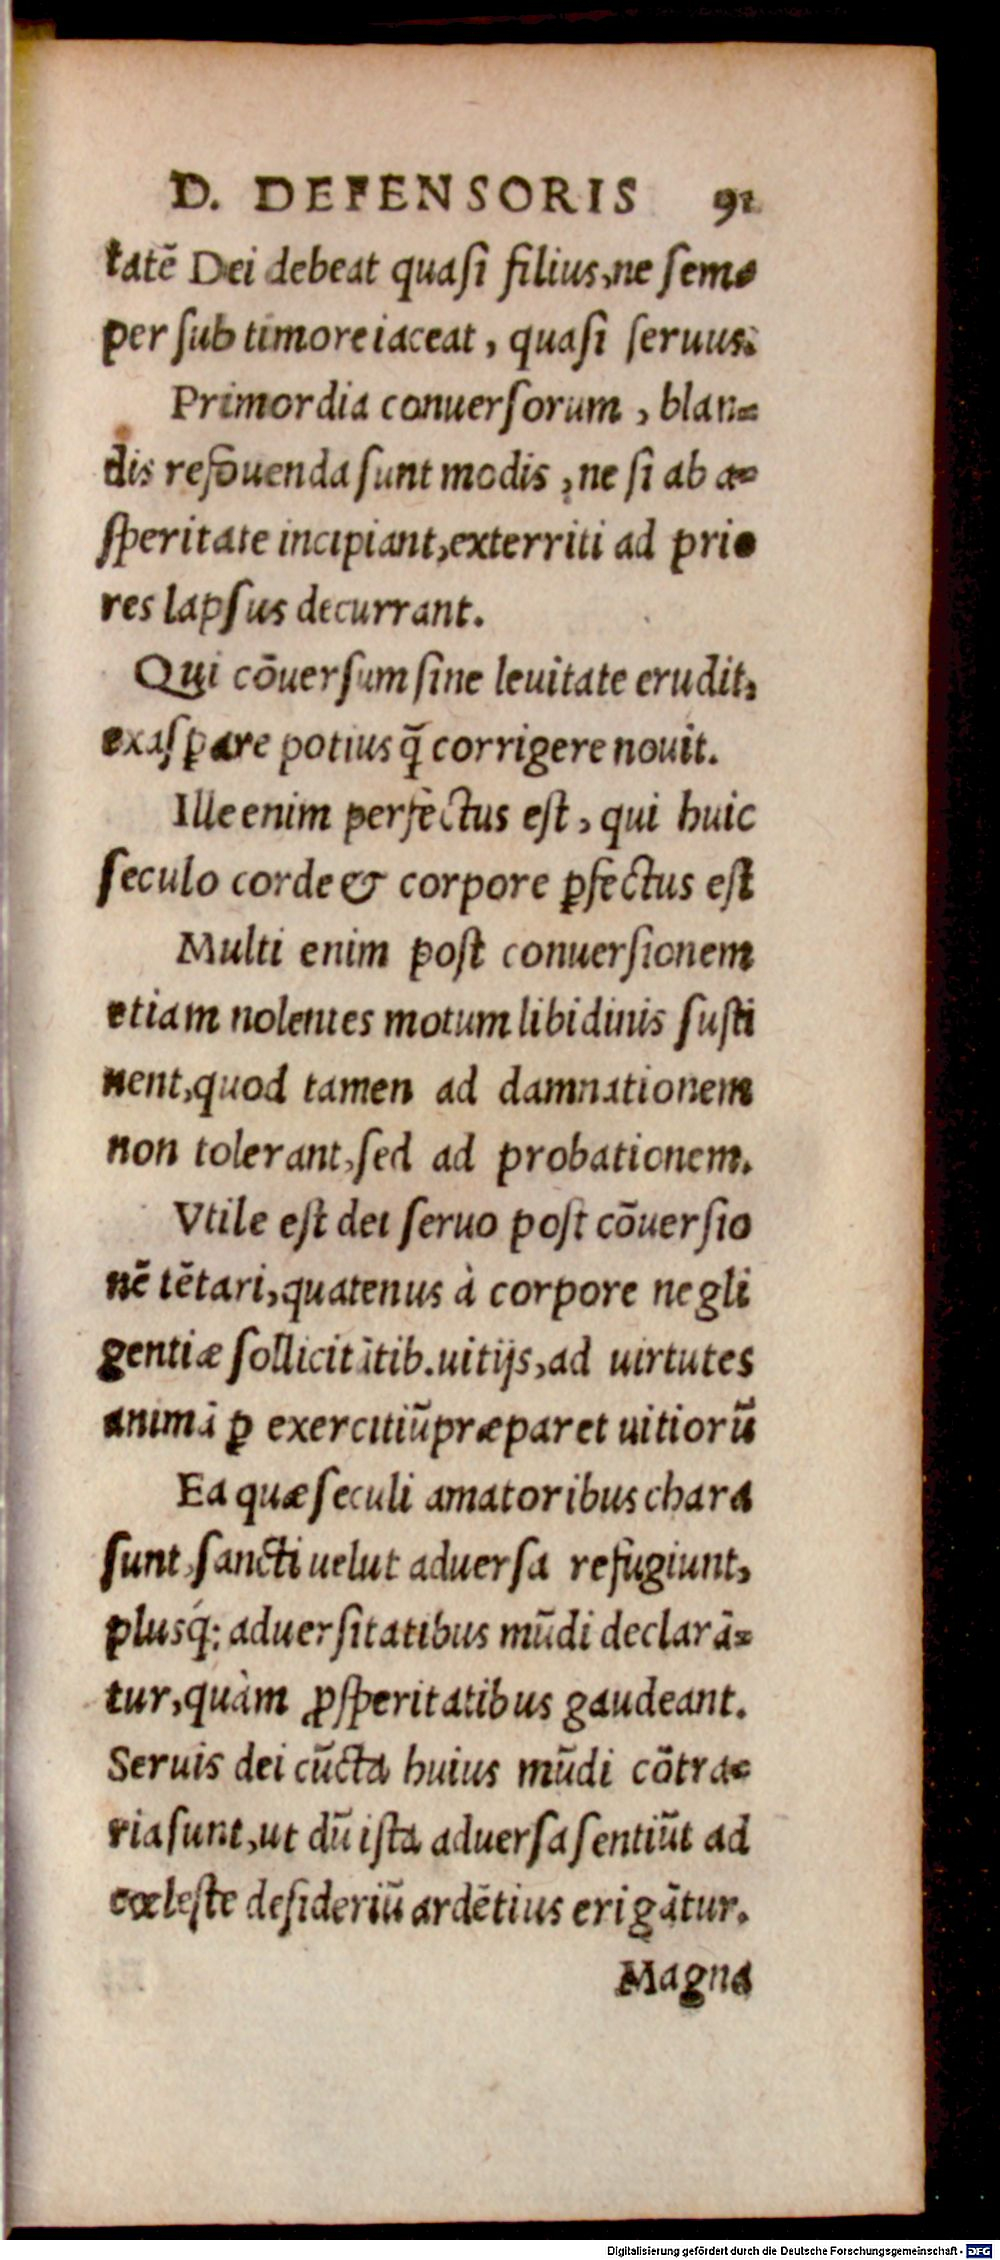 D. DEFENSORIS 91
tatē Dei debeat quasi filius, ne sem-
per sub timore iaceat, quasi seruus.
Primordia conuersorum, blan-
dis refouenda sunt modis, ne si ab a-
speritate incipiant, exterriti ad prio
res lapsus decurrant.
Qui cōuersum sine leuitate erudit,
exasꝑare potius q̃ corrigere nouit.
Ille enim perfectus est, qui huic
seculo corde & corpore ꝑfectus est
Multi enim post conuersionem
etiam nolentes motum libidinis susti
nent, quod tamen ad damnationem
non tolerant, sed ad probationem.
Vtile est dei seruo post cōuersio
nē tētari, quatenus à corpore negli
gentiæ sollicitātib. uitijs, ad uirtutes
animā ꝑ exercitiū præparet uitiorū
Ea quæ seculi amatoribus chara
sunt, sancti uelut aduersa refugiunt,
plusq́; aduersitatibus mūdi declarā-
tur, quàm ꝓsperitatibus gaudeant.
Seruis dei cūcta huius mūdi cōtra-
ria sunt, ut dū ista aduersa sentiūt ad
cœleste desideriū ardētius erigātur.
Magna
Digitalisierung gefördert durch die Deutsche Forschungsgemeinschaft - DFG